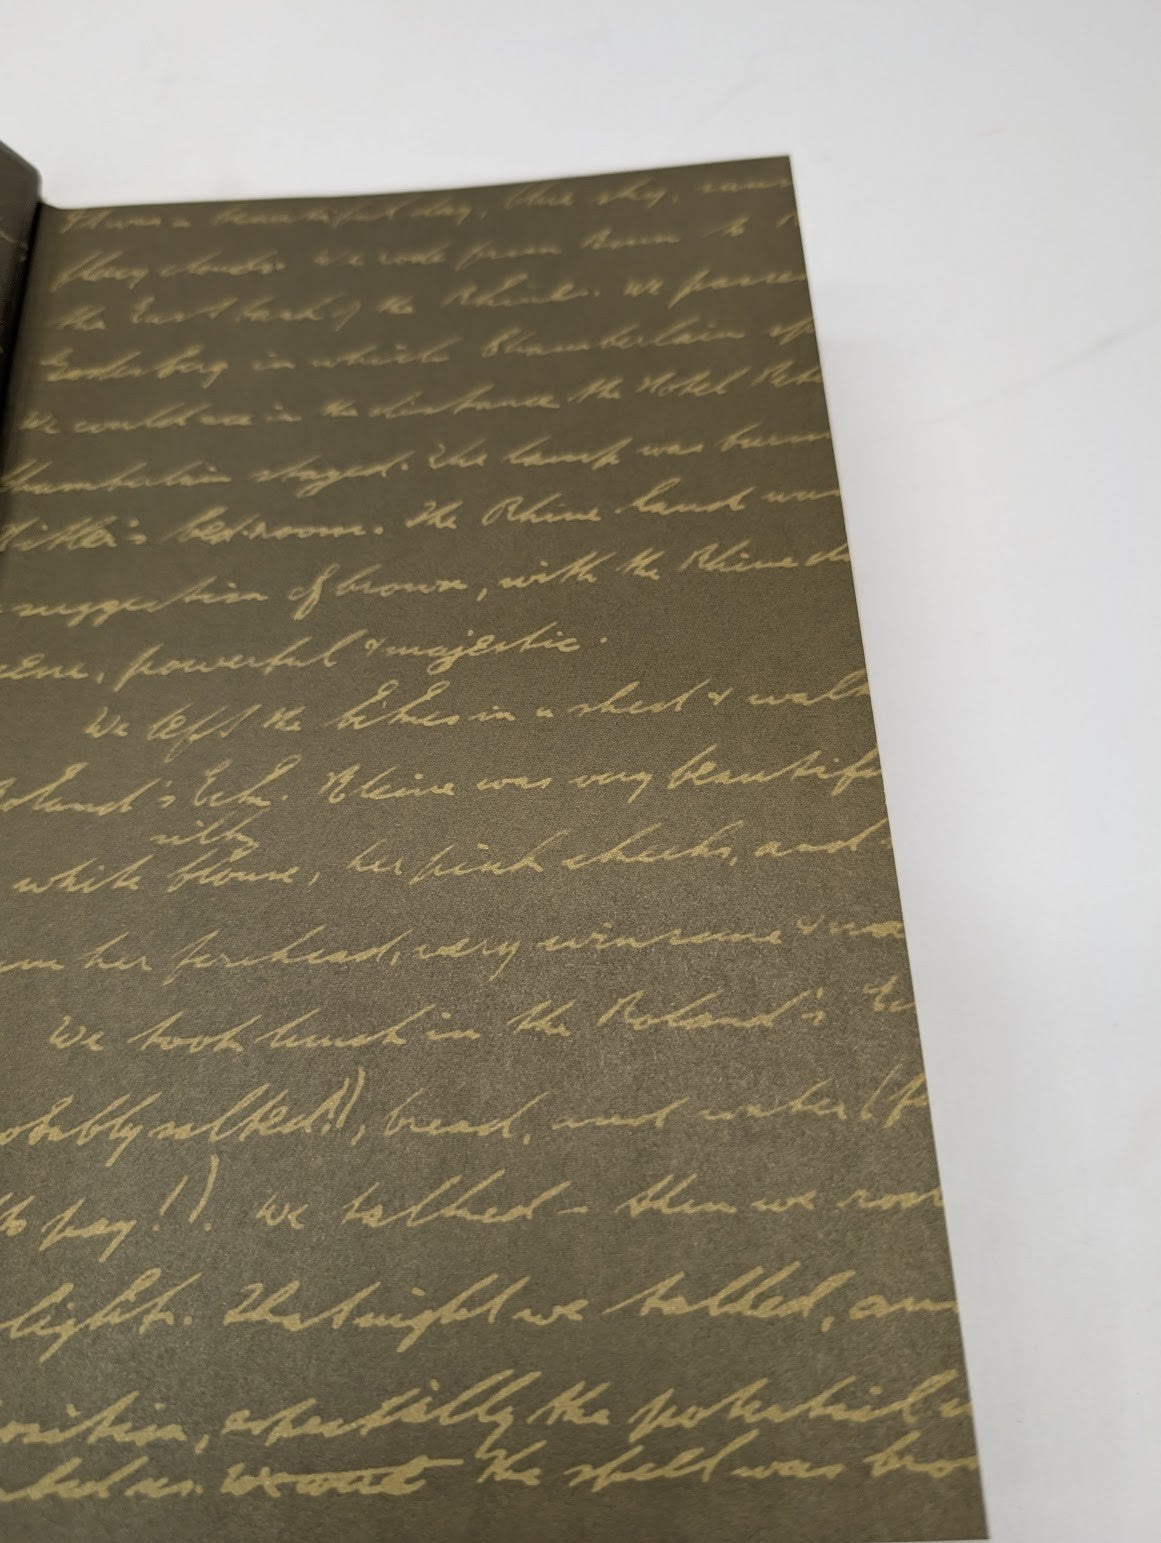 It was a beautiful day, blue sky,
clouds. We rode from Bonn to
the East bank of the Rhine. We passed
Godesberg in which Chamberlain
We could see in the distance the Hotel
Chamberlain stayed. The lamp was
Hitler's bedroom. The Rhine land was
suggestion of brown, with the Rhine
powerful & majestic.
We left the bikes in a shed &
Roland's Eck. Rhine was very beautiful
silk
white blouse, her pink cheeks, and
on her forehead, very winsome &
We took lunch in the Roland's
probably salted!!), bread, and water
to pay!!). We talked – then we
light. That night we talked, and
especially the potential
We went The spell was